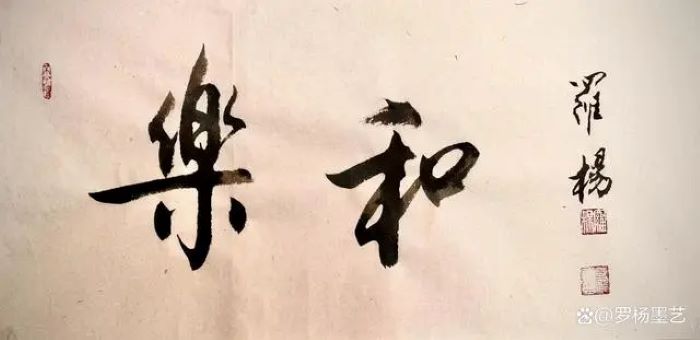 樂和
羅楊
@罗杨墨艺